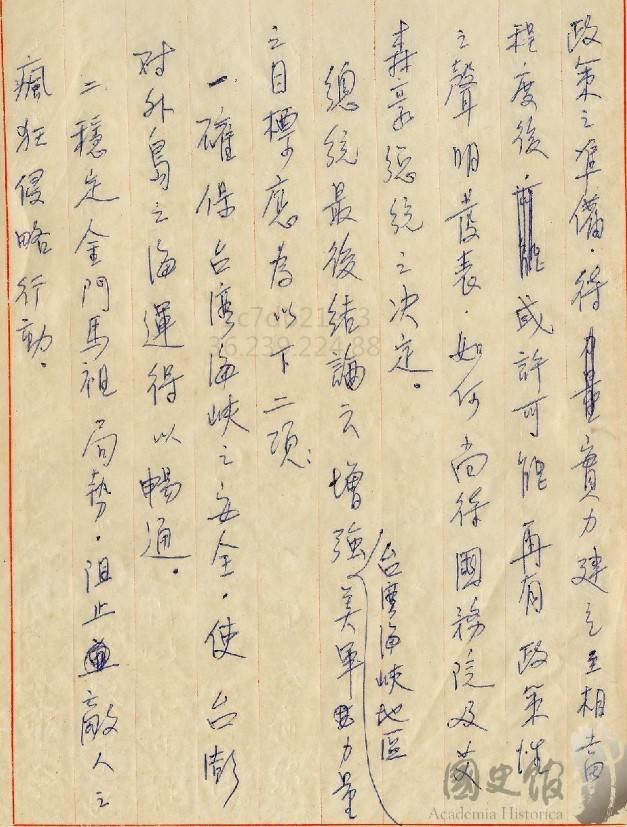 政策之準備．待實力建立至相當
程度後．或許可能再有政策性
之聲明發表．如何尚待國務院及艾
森豪總統之決定。
總統最後結論云增強台灣海峽地區美軍力量
之目標應為以下二項：
一．確保台灣海峽之安全．使台澎
對外島之海運得以暢通。
二．穩定金門馬祖局勢．阻止敵人之
瘋狂侵略行動。
36.239.224.88
國史館
Academia Historica